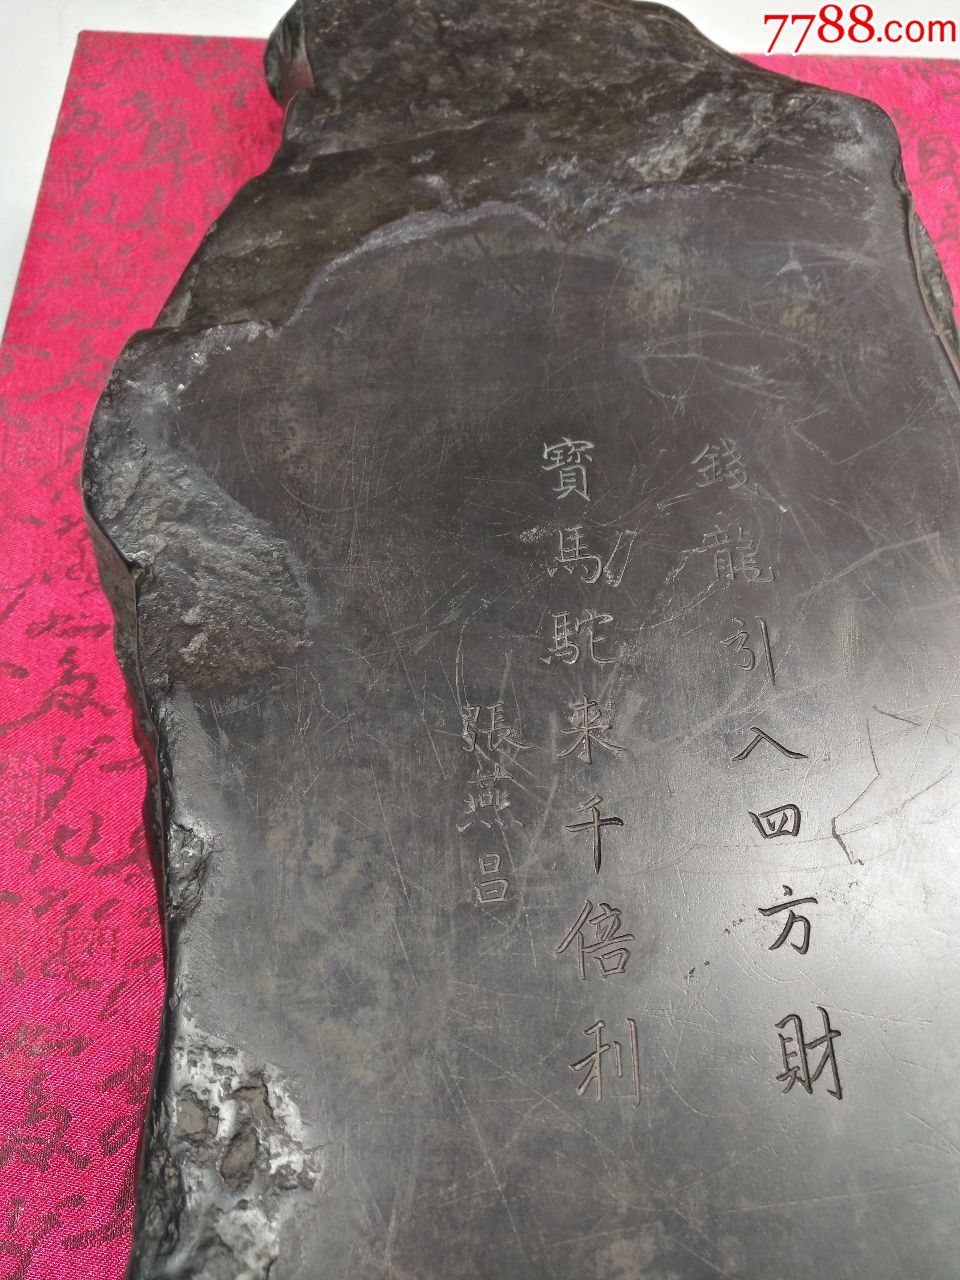 7788.com
錢龍引入四方財
寶馬駝来千倍利
張燕昌